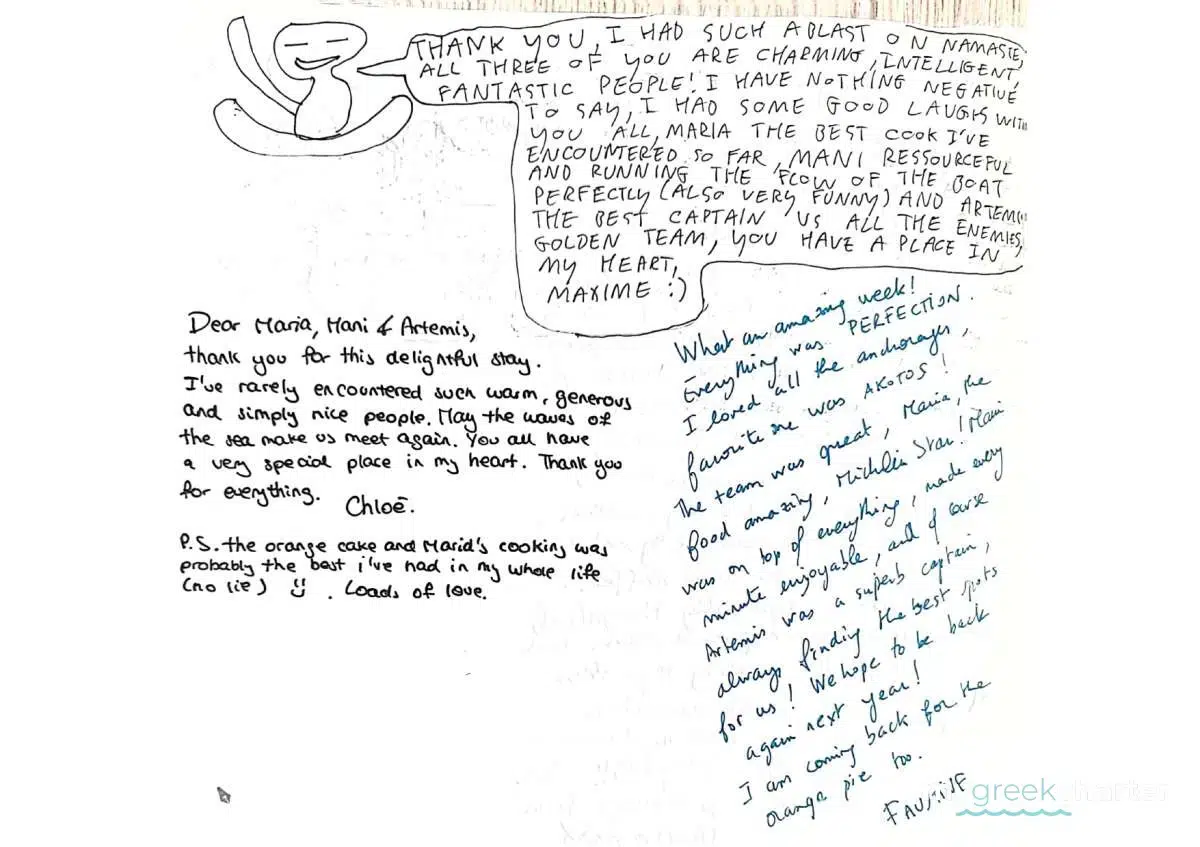 THANK YOU, I HAD SUCH A BLAST ON NAMASTE,
ALL THREE OF YOU ARE CHARMING, INTELLIGENT,
FANTASTIC PEOPLE! I HAVE NOTHING NEGATIVE
TO SAY, I HAD SOME GOOD LAUGHS WITH
YOU ALL, MARIA THE BEST COOK I'VE
ENCOUNTERED SO FAR, MANI RESSOURCEFUL
AND RUNNING THE FLOW OF THE BOAT
PERFECTLY (ALSO VERY FUNNY) AND ARTEMIS
THE BEST CAPTAIN US ALL THE ENEMIES,
GOLDEN TEAM, YOU HAVE A PLACE IN
MY HEART,
MAXIME :)
Dear Maria, Mani & Artemis,
thank you for this delightful stay.
I've rarely encountered such warm, generous
and simply nice people. May the waves of
the sea make us meet again. You all have
a very special place in my heart. Thank you
for everything.
Chloé.
P.S. the orange cake and Maria's cooking was
probably the best i've had in my whole life
(no lie) :) . Loads of love.
What an amazing week!
Everything was PERFECTION.
I loved all the anchorages,
favorite one was AKOTOS!
The team was great, Maria, the
food amazing, Michelin Star! Mani
was on top of everything, made every
minute enjoyable, and of course
Artemis was a superb captain,
always finding the best spots
for us! We hope to be back
again next year!
I am coming back for the
orange pie too.
FAUSTINE
greek charter